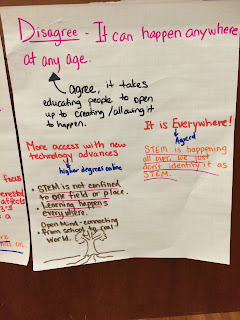 Disagree - It can happen anywhere
at any age.
agree, it takes
educating people to open
up to creating/allowing it
to happen.
It is Everywhere!
Agreed
STEM is happening
all over, we just
don't identify it as
STEM.
More access with new
technology advances
higher degrees online
• STEM is not confined
to one field or place.
• Learning happens
everywhere.
Open Mind - connecting
• from school to real
world.
focus
affects
a